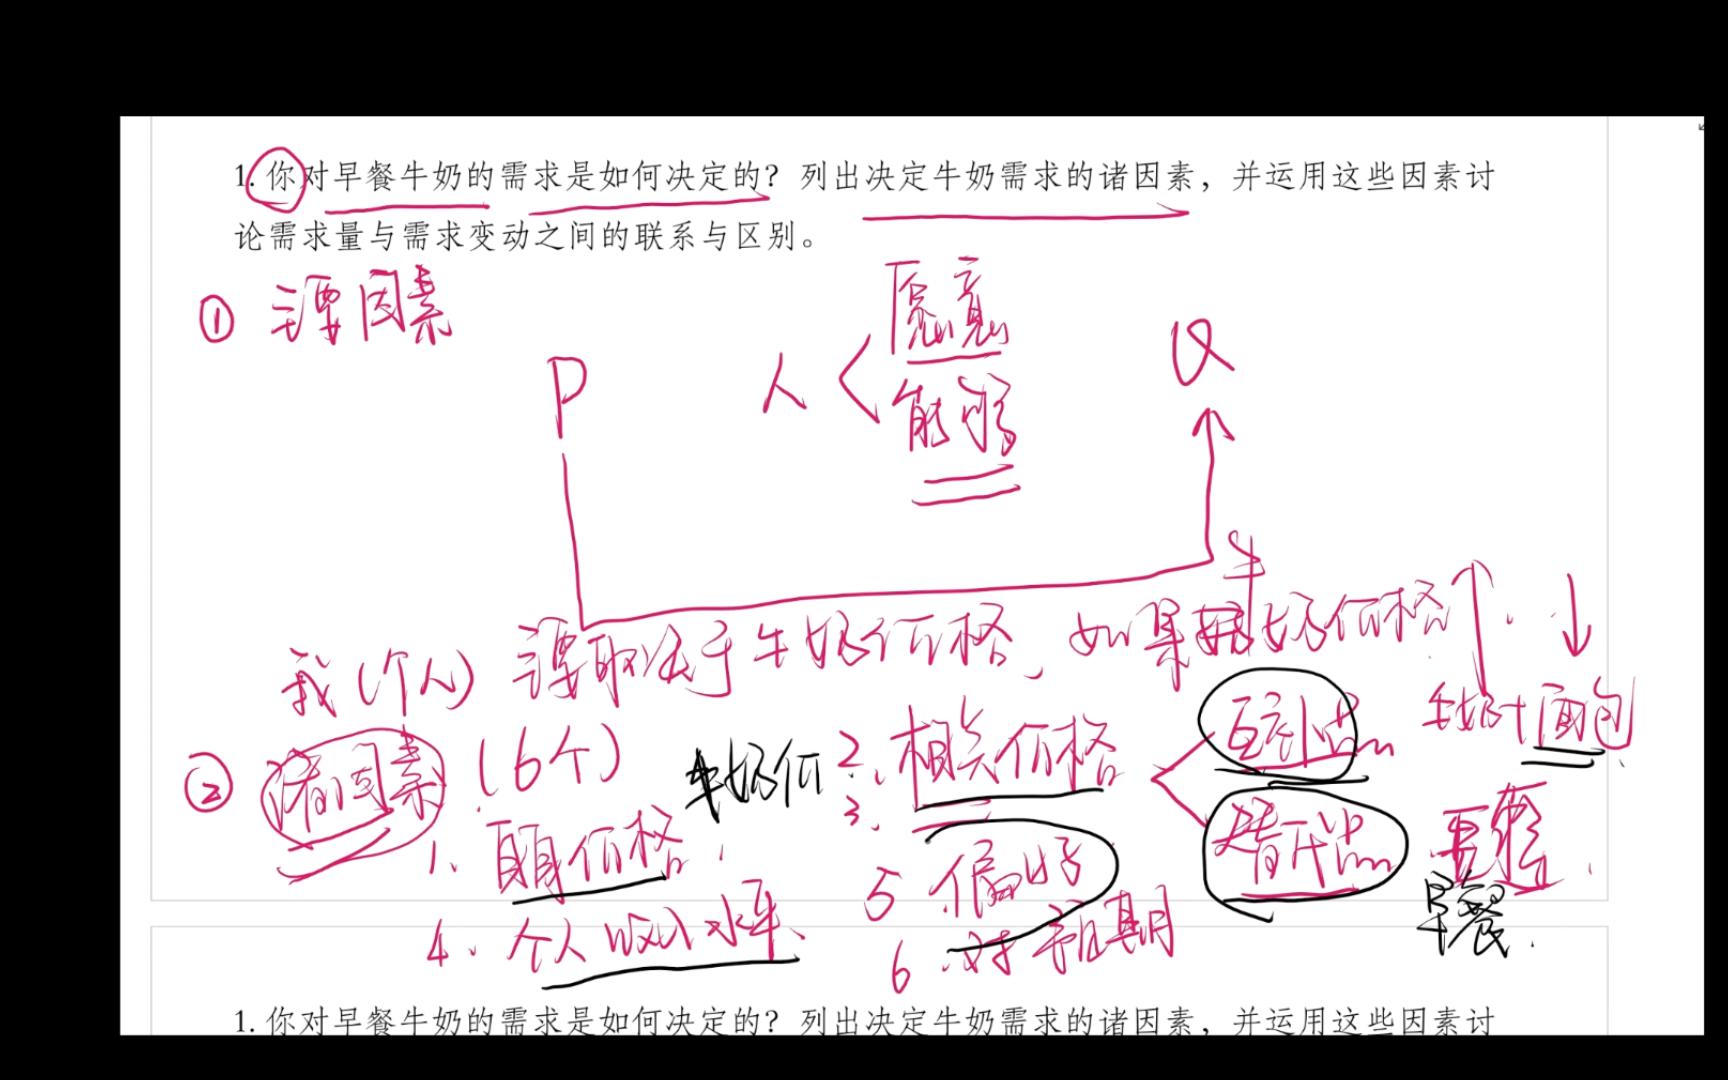 1. 你对早餐牛奶的需求是如何决定的？列出决定牛奶需求的诸因素，并运用这些因素讨
论需求量与需求变动之间的联系与区别。
① 主要因素
愿意
P 人 Q
能够
我（个人）主要取决于牛奶价格，如果牛奶价格↑. ↓
② 诸因素（6个） 牛奶价 2、相关价格 互补品 牛奶+面包
1、自身价格. 3、 替代品 豆浆.
4. 个人收入水平 5 偏好 早餐.
6. 对预期
1. 你对早餐牛奶的需求是如何决定的？列出决定牛奶需求的诸因素，并运用这些因素讨